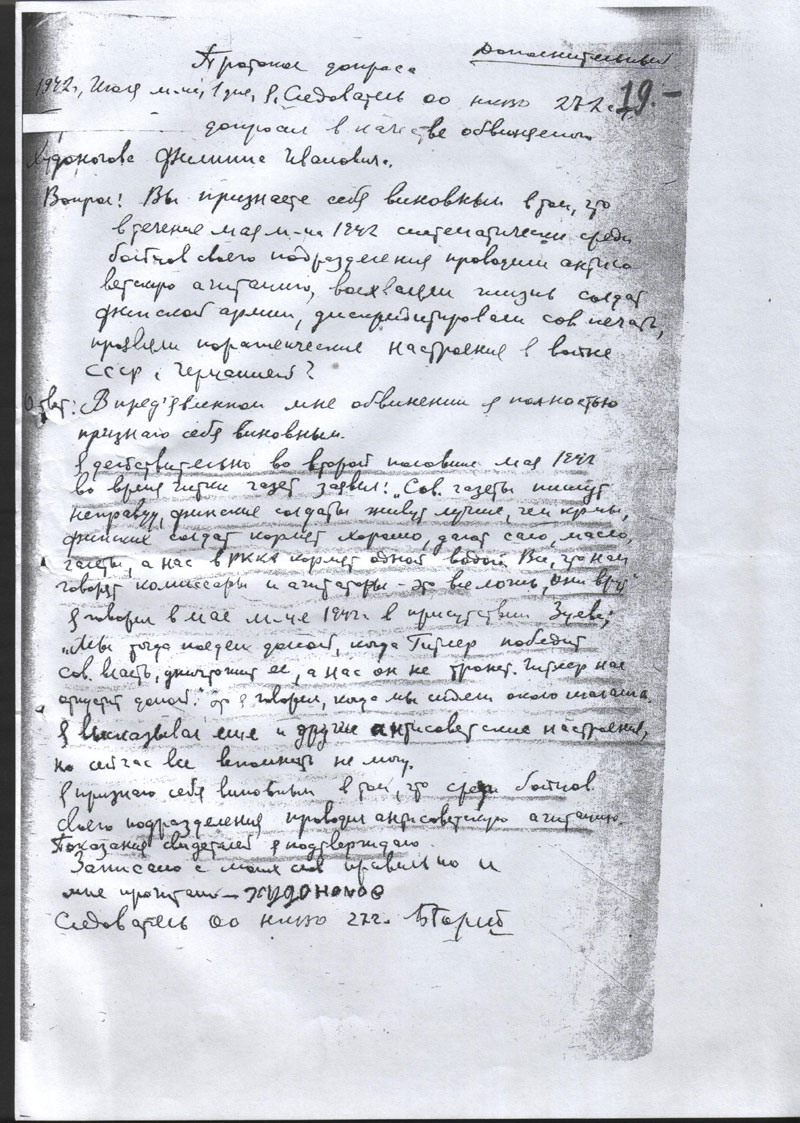 Дополнительный
Протокол допроса
19.-
1942г., Июля м-ца, 1 дня, Я, Следователь ОО НКВД 27
допросил в качестве обвиняемого
Худоногова Филиппа Ивановича.
Вопрос: Вы признаете себя виновным в том, что
в течение мая м-ца 1942 систематически среди
бойцов своего подразделения проводили антисо
ветскую агитацию, восхваляли жизнь солдат
финской армии, дискредитировали сов. печать,
пораженческие настроения в войне
СССР с Германией?
Ответ: В пред'явленном мне обвинении я полностью
признаю себя виновным.
Я действительно во второй половине мая 1942
во время читки газет заявил: "Сов. газеты пишут
неправду, финские солдаты живут лучше, чем мы,
финских солдат кормят хорошо, дают сало, масло,
галеты, а нас в РККА кормят одной водой. Все, что нам
говорят комиссары и агитаторы - это все ложь, они врут"
Я говорил в мае м-це 1942г. в присутствии Зуева:
"Мы тогда поедем домой, когда Гитлер победит
сов. власть, уничтожит ее, а нас он не тронет. Гитлер нас
отпустит домой." Это я говорил, когда мы сидели около шалаша.
Я высказывал еще и другие антисоветские настроения,
но сейчас все вспомнить не могу.
Я признаю себя виновным в том, что среди бойцов
своего подразделения проводил антисоветскую агитацию.
Показания свидетелей я подтверждаю.
Записано с моих слов правильно и
мне прочитано - Худоногов
Следователь ОО НКВД 27